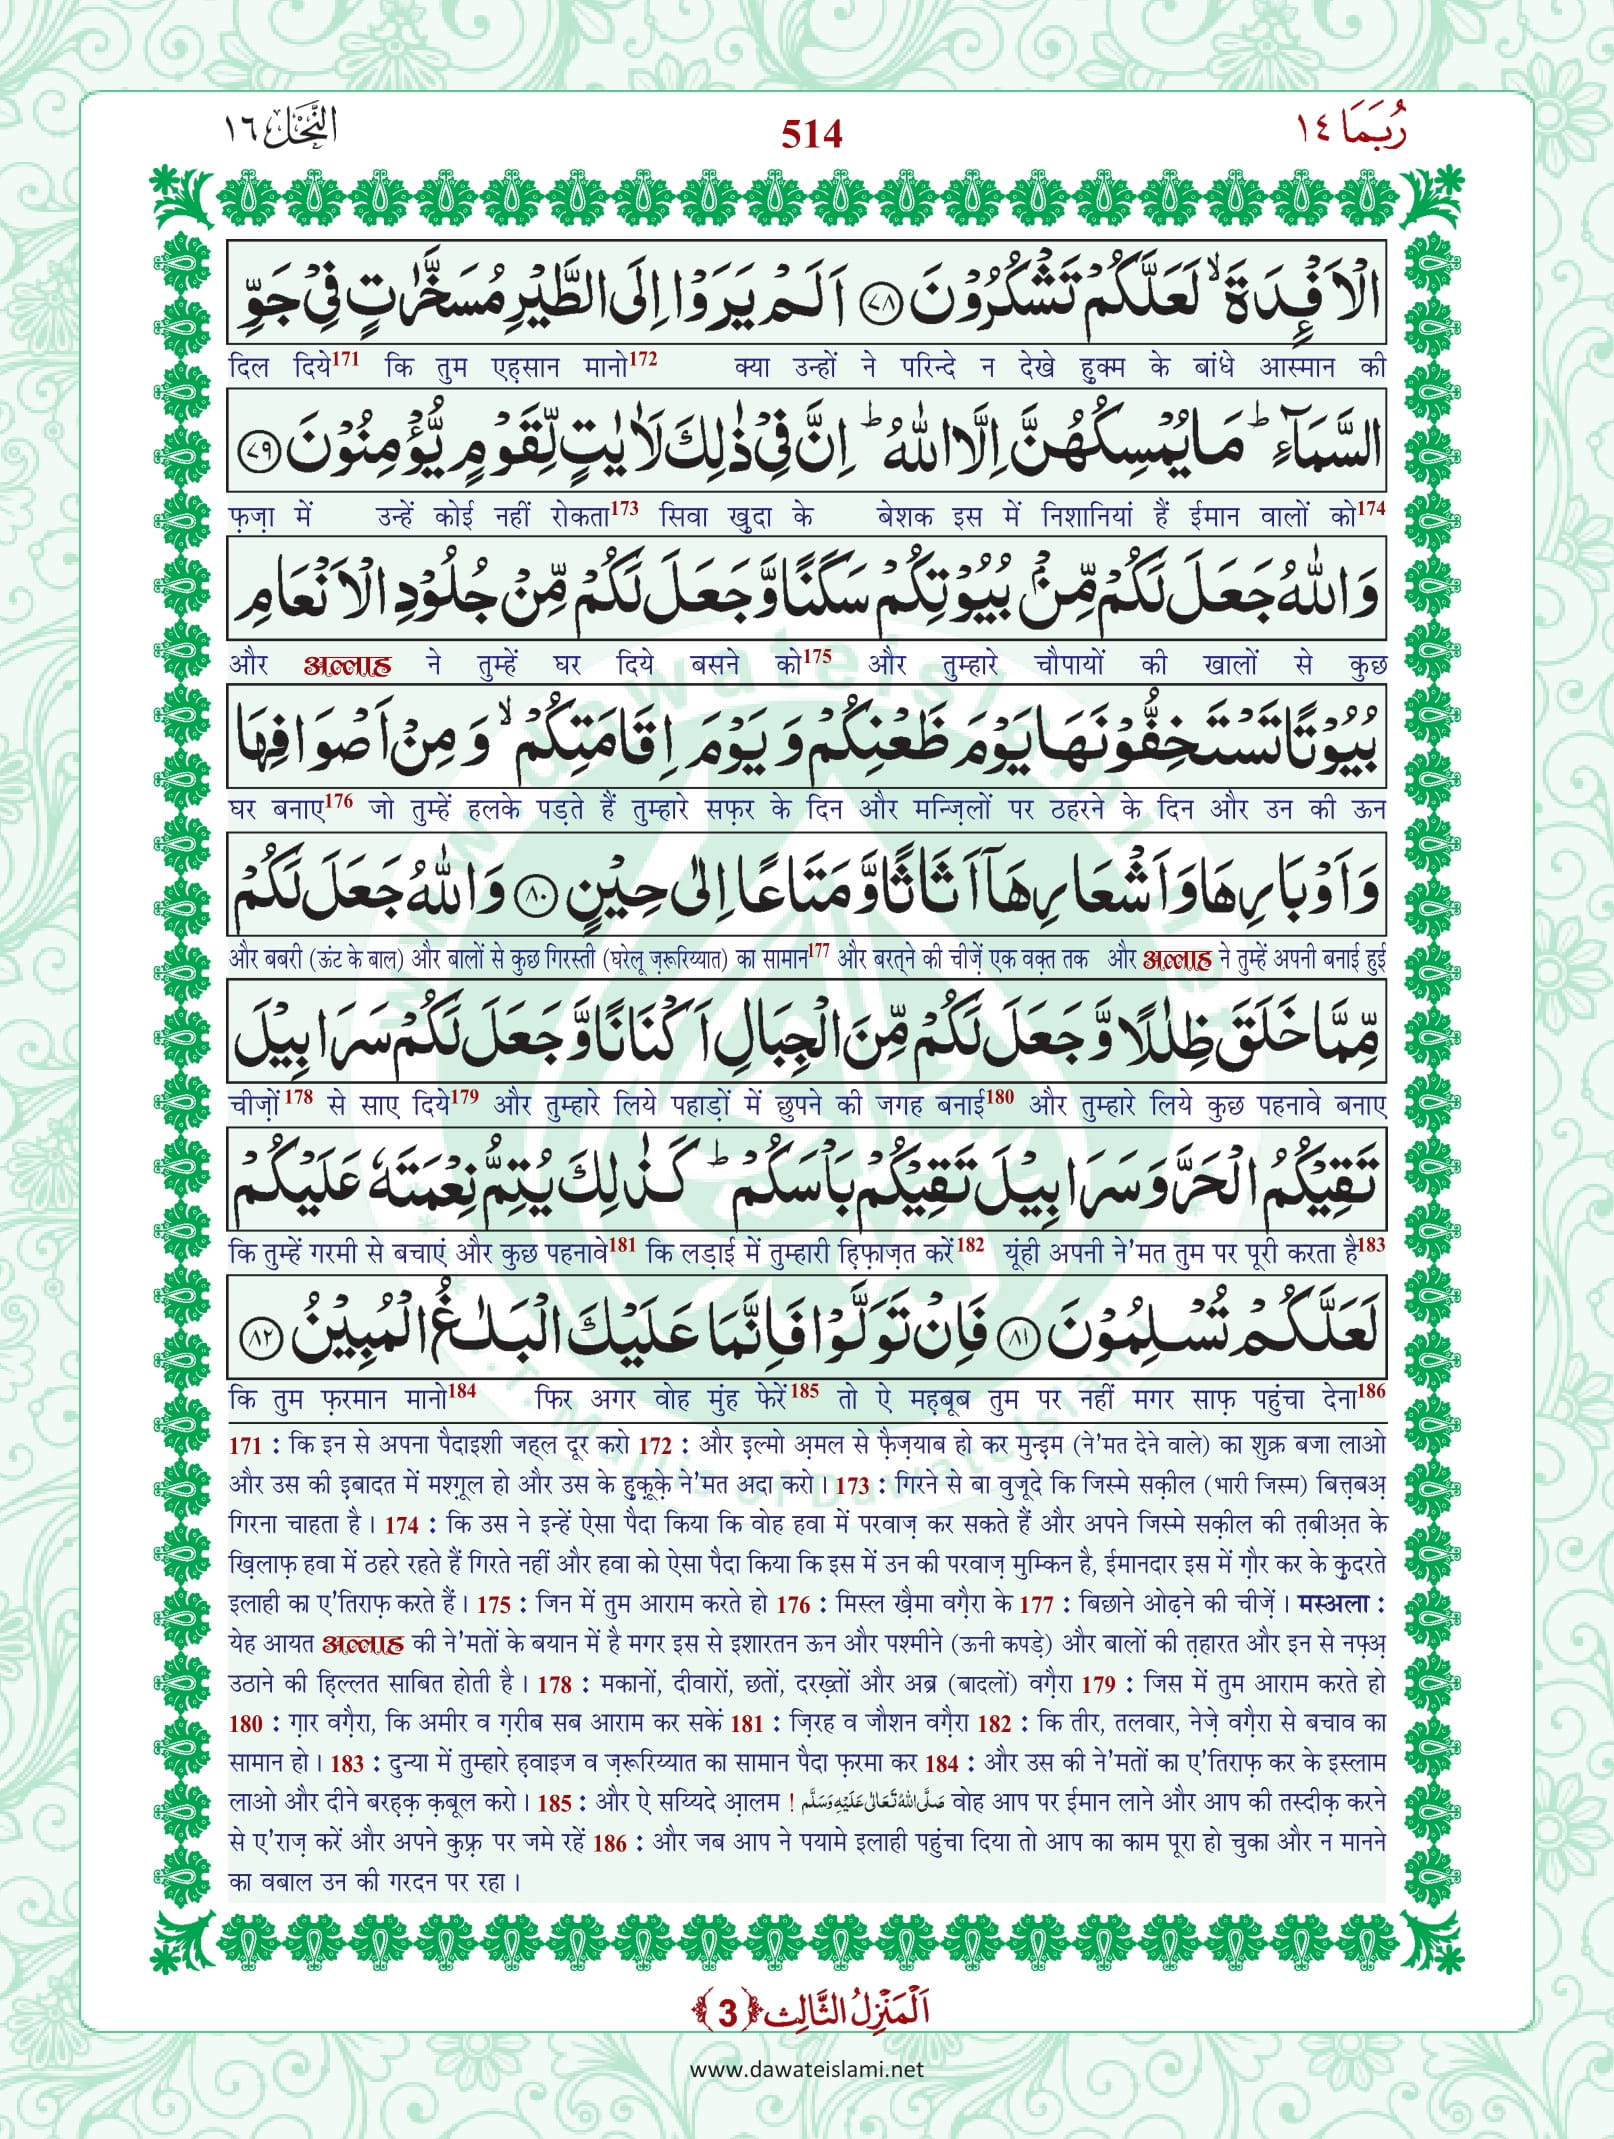 رُبَمَا ١٤
514
النَّحْل ١٦
الْاَفْـِٕدَةَ ۙ لَعَلَّكُمْ تَشْكُرُوْنَ ﴿٧٨﴾ اَلَمْ يَرَوْا اِلَى الطَّيْرِ مُسَخَّرٰتٍ فِيْ جَوِّ
दिल दिये171 कि तुम एह़सान मानो172 क्या उन्हों ने परिन्दे न देखे हुक्म के बांधे आस्मान की
السَّمَآءِ ؕ مَا يُمْسِكُهُنَّ اِلَّا اللّٰهُ ؕ اِنَّ فِيْ ذٰلِكَ لَاٰيٰتٍ لِّقَوْمٍ يُّؤْمِنُوْنَ ﴿٧٩﴾
फ़ज़ा में उन्हें कोई नहीं रोकता173 सिवा ख़ुदा के बेशक इस में निशानियां हैं ईमान वालों को174
وَ اللّٰهُ جَعَلَ لَكُمْ مِّنْۢ بُيُوْتِكُمْ سَكَنًا وَّ جَعَلَ لَكُمْ مِّنْ جُلُوْدِ الْاَنْعَامِ
और अल्लाह ने तुम्हें घर दिये बसने को175 और तुम्हारे चौपायों की खालों से कुछ
بُيُوْتًا تَسْتَخِفُّوْنَهَا يَوْمَ ظَعْنِكُمْ وَ يَوْمَ اِقَامَتِكُمْ ۙ وَ مِنْ اَصْوَافِهَا
घर बनाए176 जो तुम्हें हलके पड़ते हैं तुम्हारे सफ़र के दिन और मन्ज़िलों पर ठहरने के दिन और उन की ऊन
وَ اَوْبَارِهَا وَ اَشْعَارِهَاۤ اَثَاثًا وَّ مَتَاعًا اِلٰى حِيْنٍ ﴿٨٠﴾ وَ اللّٰهُ جَعَلَ لَكُمْ
और बबरी (ऊंट के बाल) और बालों से कुछ गिरस्ती (घरेलू ज़रूरिय्यात) का सामान177 और बरत्ने की चीज़ें एक वक़्त तक और अल्लाह ने तुम्हें अपनी बनाई हुई
مِّمَّا خَلَقَ ظِلٰلًا وَّ جَعَلَ لَكُمْ مِّنَ الْجِبَالِ اَكْنَانًا وَّ جَعَلَ لَكُمْ سَرَابِيْلَ
चीज़ों178 से साए दिये179 और तुम्हारे लिये पहाड़ों में छुपने की जगह बनाई180 और तुम्हारे लिये कुछ पहनावे बनाए
تَقِيْكُمُ الْحَرَّ وَ سَرَابِيْلَ تَقِيْكُمْ بَاْسَكُمْ ؕ كَذٰلِكَ يُتِمُّ نِعْمَتَهٗ عَلَيْكُمْ
कि तुम्हें गरमी से बचाएं और कुछ पहनावे181 कि लड़ाई में तुम्हारी हि़फ़ाज़त करें182 यूंही अपनी ने'मत तुम पर पूरी करता है183
لَعَلَّكُمْ تُسْلِمُوْنَ ﴿٨١﴾ فَاِنْ تَوَلَّوْا فَاِنَّمَا عَلَيْكَ الْبَلٰغُ الْمُبِيْنُ ﴿٨٢﴾
कि तुम फ़रमान मानो184 फिर अगर वोह मुंह फेरें185 तो ऐ मह़बूब तुम पर नहीं मगर साफ़ पहुंचा देना186
171 : कि इन से अपना पैदाइशी जह्ल दूर करो 172 : और इ़ल्मो अ़मल से फ़ैज़याब हो कर मुन्इ़म (ने'मत देने वाले) का शुक्र बजा लाओ
और उस की इ़बादत में मश्ग़ूल हो और उस के हु़क़ूक़े ने'मत अदा करो । 173 : गिरने से बा वुजूदे कि जिस्मे सक़ील (भारी जिस्म) बित्त़बअ़
गिरना चाहता है । 174 : कि उस ने इन्हें ऐसा पैदा किया कि वोह हवा में परवाज़ कर सकते हैं और अपने जिस्मे सक़ील की त़बीअ़त के
ख़िलाफ़ हवा में ठहरे रहते हैं गिरते नहीं और हवा को ऐसा पैदा किया कि इस में उन की परवाज़ मुम्किन है, ईमानदार इस में ग़ौर कर के क़ुदरते
इलाही का ए'तिराफ़ करते हैं । 175 : जिन में तुम आराम करते हो 176 : मिस्ल ख़ैमा वग़ैरा के 177 : बिछाने ओढ़ने की चीज़ें । मस्अला :
येह आयत अल्लाह की ने'मतों के बयान में है मगर इस से इशारतन ऊन और पश्मीने (ऊनी कपड़े) और बालों की त़हारत और इन से नफ़्अ़
उठाने की हि़ल्लत साबित होती है । 178 : मकानों, दीवारों, छतों, दरख़्तों और अब्र (बादलों) वग़ैरा 179 : जिस में तुम आराम करते हो
180 : ग़ार वग़ैरा, कि अमीर व ग़रीब सब आराम कर सकें 181 : ज़िरह व जौशन वग़ैरा 182 : कि तीर, तलवार, नेज़े वग़ैरा से बचाव का
सामान हो । 183 : दुन्या में तुम्हारे ह़वाइज व ज़रूरिय्यात का सामान पैदा फ़रमा कर 184 : और उस की ने'मतों का ए'तिराफ़ कर के इस्लाम
लाओ और दीने बरह़क़ क़बूल करो । 185 : और ऐ सय्यिदे आ़लम ! صَلَّى اللّٰهُ تَعَالٰى عَلَيْهِ وَسَلَّم वोह आप पर ईमान लाने और आप की तस्दीक़ करने
से ए'राज़ करें और अपने कुफ़्र पर जमे रहें 186 : और जब आप ने पयामे इलाही पहुंचा दिया तो आप का काम पूरा हो चुका और न मानने
का वबाल उन की गरदन पर रहा ।
اَلْمَنْزِلُ الثَّالِث ﴿3﴾
www.dawateislami.net